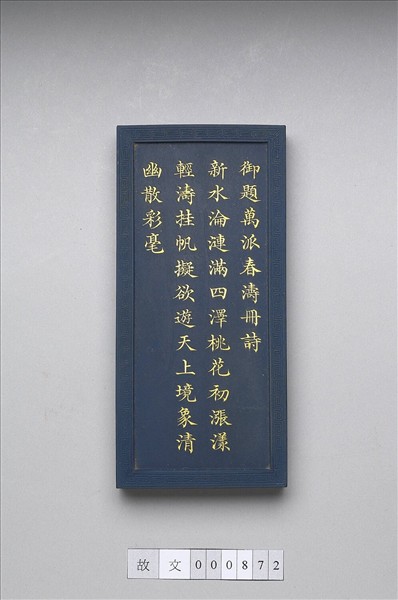 御題萬派春濤冊詩
新水淪漣滿四澤桃花初漲漾
輕濤挂帆擬欲遊天上境象清
幽散彩毫
故文000872